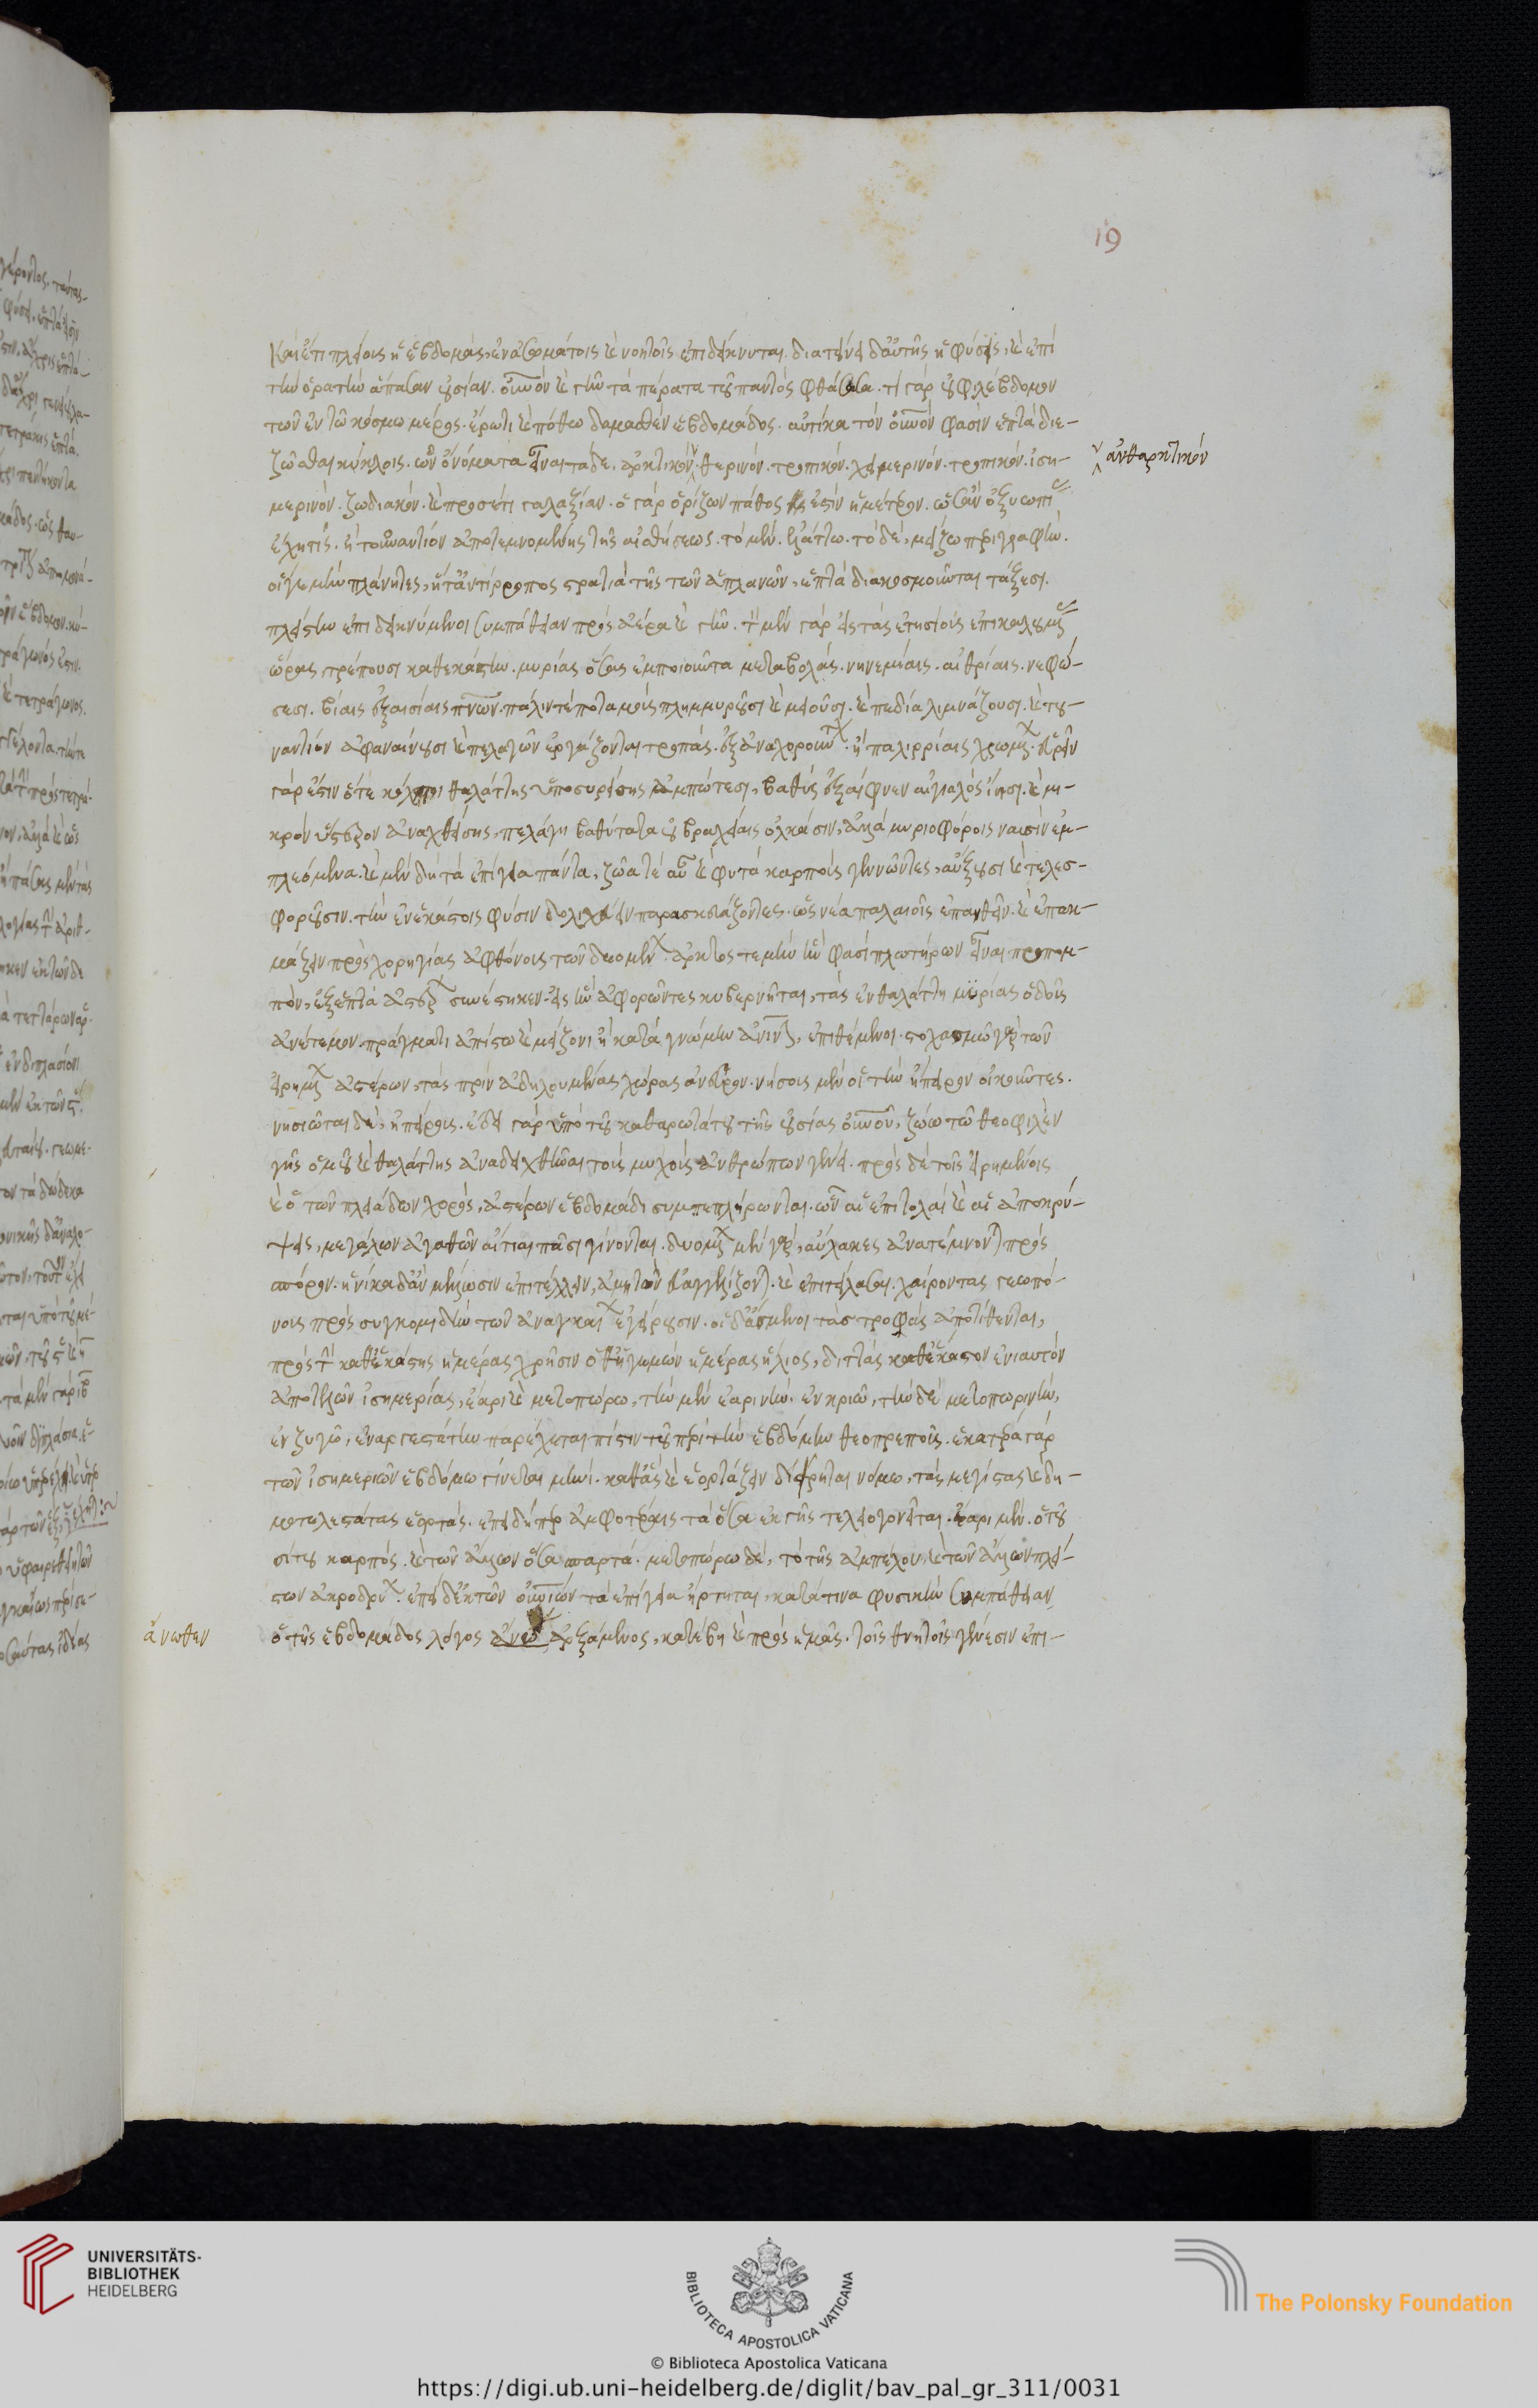 19
Καὶ ἔτι πλείους ἡ ἑβδομὰς, ἐν ἀσωμάτοις καὶ νοητοῖς ἐπιδείκνυται. διατείνει δ' αὐτῆς ἡ φύσις, καὶ ἐπὶ
τὴν ὁρατὴν ἅπασαν οὐσίαν. οὐνὸν καὶ γῆν τὰ πέρατα τοῦ παντὸς φθάσασα. τί γὰρ οὐ φιλέβδομον
τῶν ἐν τῷ κόσμῳ μέρος. ἔρωτι καὶ πόθῳ δαμασθὲν ἑβδομάδος. αὐτίκα τὸν οὐνόν φασὶν ἑπτὰ διε-
ζῶσθαι κύκλοις. ὧν ὀνόματα εἶναι τάδε. ἀρκτικόν. θερινόν. τροπικόν. χειμερινόν. τροπικόν. ἰση-
ἀνταρκτικόν
μερινόν. ζωδιακόν. καὶ προσέτι γαλαξίαν. ὁ γὰρ ὁρίζων πάθος ἐστὶν ἡμέτερον. ὡς ἂν ὀξυωπίας
ἔχῃ τις. ἢ τοὐναντίον ἀποτεμνομένης τῆς αἰσθήσεως. τὸ μὲν. ἐλάττω. τὸ δὲ, μείζω περιγραφήν.
οἵγε μὴν πλάνητες, ἥ τ' ἀντίρροπος στρατιὰ τῆς τῶν ἀπλανῶν, ἑπτὰ διακοσμοῦνται τάξεσι.
πλείστην ἐπιδεικνύμενοι συμπάθειαν πρὸς ἀέρα καὶ γῆν. τὸν μὲν γὰρ εἰς τὰς ἐτησίους ἐπικαλουμένας
ὥρας, τρέπουσι καθ' ἑκάστην. μυρίας ὅσας ἐμποιοῦντα μεταβολάς. νηνεμίαις. αἰθρίαις. νεφώ-
σεσι. βίαις ἐξαισίοις πνων. πάλιν τὲ ποταμοὺς πλημμυροῦσι καὶ μειοῦσι. καὶ πεδία λιμνάζουσι. καὶ του-
ναντίον ἀφαναίνουσι καὶ πελαγῶν ἐργάζονται τροπάς. ἐξαναχορούντων. ἢ παλιρρίαις χρωμένων. εὐρεῖν
γάρ ἐστιν ὅτε κόλποι θαλάττης ὑποσυρείσης ἀμπώτεσι, βαθὺς ἐξαίφνην αἰγιαλὸς εἰσι. καὶ μι-
κρὸν ὕστερον ἀναχθείσης, πελάγη βαθύτατα οὐ βραχείαις ὁλκάσιν, ἀλλὰ μυριοφόροις ναυσὶν ἐμ-
πλεόμενα. καὶ μὲν δὴ τὰ ἐπίγεια πάντα, ζῶα τὲ αὖ καὶ φυτὰ καρποὺς γεννῶντες, αὔξουσι καὶ τελεσ-
φοροῦσιν. τὴν ἐν ἑκάστοις φύσιν δολιχεύειν παρασκευάζοντες. ὡς νέα παλαιοῖς ἐπανθεῖν. καὶ ἐπακ-
μάζειν πρὸς χορηγίας ἀφθόνους τῶν δεομένων. ἄρκτος γε μὴν ἥν φασὶ πλωτήρων εἶναι προπομ-
πὸν, ἐξ ἑπτὰ ἀστέρων συνέστηκεν. εἰς ἣν ἀφορῶντες κυβερνῆται, τὰς ἐν θαλάττῃ μυρίας ὁδοὺς
ἀνέτεμον. πράγματι ἀπίστω καὶ μείζονι ἢ κατὰ γνώμην ἀνιν, ἐπιθέμενοι. στοχασμῷ γὰρ τῶν
εἰρημένων ἀστέρων, τὰς πρὶν ἀδηλουμένας χώρας ἀνεῦρον. νήσους μὲν οἱ τὴν ἤπειρον οἰκοῦντες.
νησιῶται δὲ, ἠπείρους. ἔδει γὰρ ὑπὸ τοῦ καθαρωτάτου τῆς οὐσίας οὐνοῦ, ζώω τῷ θεοφιλεῖ
γῆς ὁμοῦ καὶ θαλάττης ἀναδειχθῆναι τοὺς μυχοὺς ἀνθρώπων γένει. πρὸς δὲ τοῖς εἰρημένοις
καὶ ὁ τῶν πλειάδων χορὸς, ἀστέρων ἑβδομάδι συμπεπλήρωνται. ὧν αἱ ἐπιτολαὶ καὶ αἱ ἀποκρύ-
ψεις, μεγάλων ἀγαθῶν αἴτιαι πᾶσι γίνονται. δυομένων μὲν γὰρ, αὔλακες ἀνατέμνονται πρὸς
σπόρον. ἡνίκα δ' ἂν μέλλωσιν ἐπιτέλλειν, ἀμητὸν εὐαγγελίζονται. καὶ ἐπιτείλασαι. χαίροντας γεωπό-
νους πρὸς συγκομιδὴν τῶν ἀναγκαίων ἐγείρουσιν. οἱ δ' ἄσμενοι τὰς τροφὰς ἀποτίθενται,
πρὸς τὴν καθ' ἑκάστης ἡμέρας χρῆσιν ὅθ' ἡγεμὼν ἡμέρας ἥλιος, διττὰς καθ' ἕκαστον ἐνιαυτὸν
ἀποτελῶν ἰσημερίας, ἔαρι καὶ μετοπώρω, τὴν μὲν ἐαρινὴν. ἐν κριῷ, τὴν δὲ μετοπωρινὴν,
ἐν ζυγῷ, ἐναργεστάτην παρέχεται πίστιν τοῦ περὶ τὴν ἑβδόμην θεοπρεποῦς. ἑκατέρα γὰρ
τῶν ἰσημεριῶν ἑβδόμω γίνεται μηνί. καθ' ἃς καὶ ἑορτάζειν διείρηται νόμω, τὰς μεγίστας καὶ δη-
μοτελεστάτας ἑορτάς. ἐπειδήπερ ἀμφοτέραις τὰ ὅσα ἐκ γῆς τελειογονεῖται. ἔαρι μὲν. ὁ τοῦ
σίτου καρπός. καὶ τῶν ἄλλων ὅσα σπαρτά. μετοπώρω δὲ, τὸ τῆς ἀμπέλου. καὶ τῶν ἄλλων πλεί-
στων ἀκροδρύων. ἐπεὶ δ' ἐκ τῶν οὐνίων τὰ ἐπίγεια ἤρτηται, κατά τινα φυσικὴν συμπάθειαν
ὁ τῆς ἑβδομάδος λόγος ἄνω ἀρξάμενος, κατέβη καὶ πρὸς ἡμᾶς. τοῖς θνητοῖς γένεσιν ἐπι-
ἄνωθεν
UNIVERSITÄTS-
BIBLIOTHEK
HEIDELBERG
BIBLIOTECA APOSTOLICA VATICANA
© Biblioteca Apostolica Vaticana
The Polonsky Foundation
https://digi.ub.uni-heidelberg.de/diglit/bav_pal_gr_311/0031